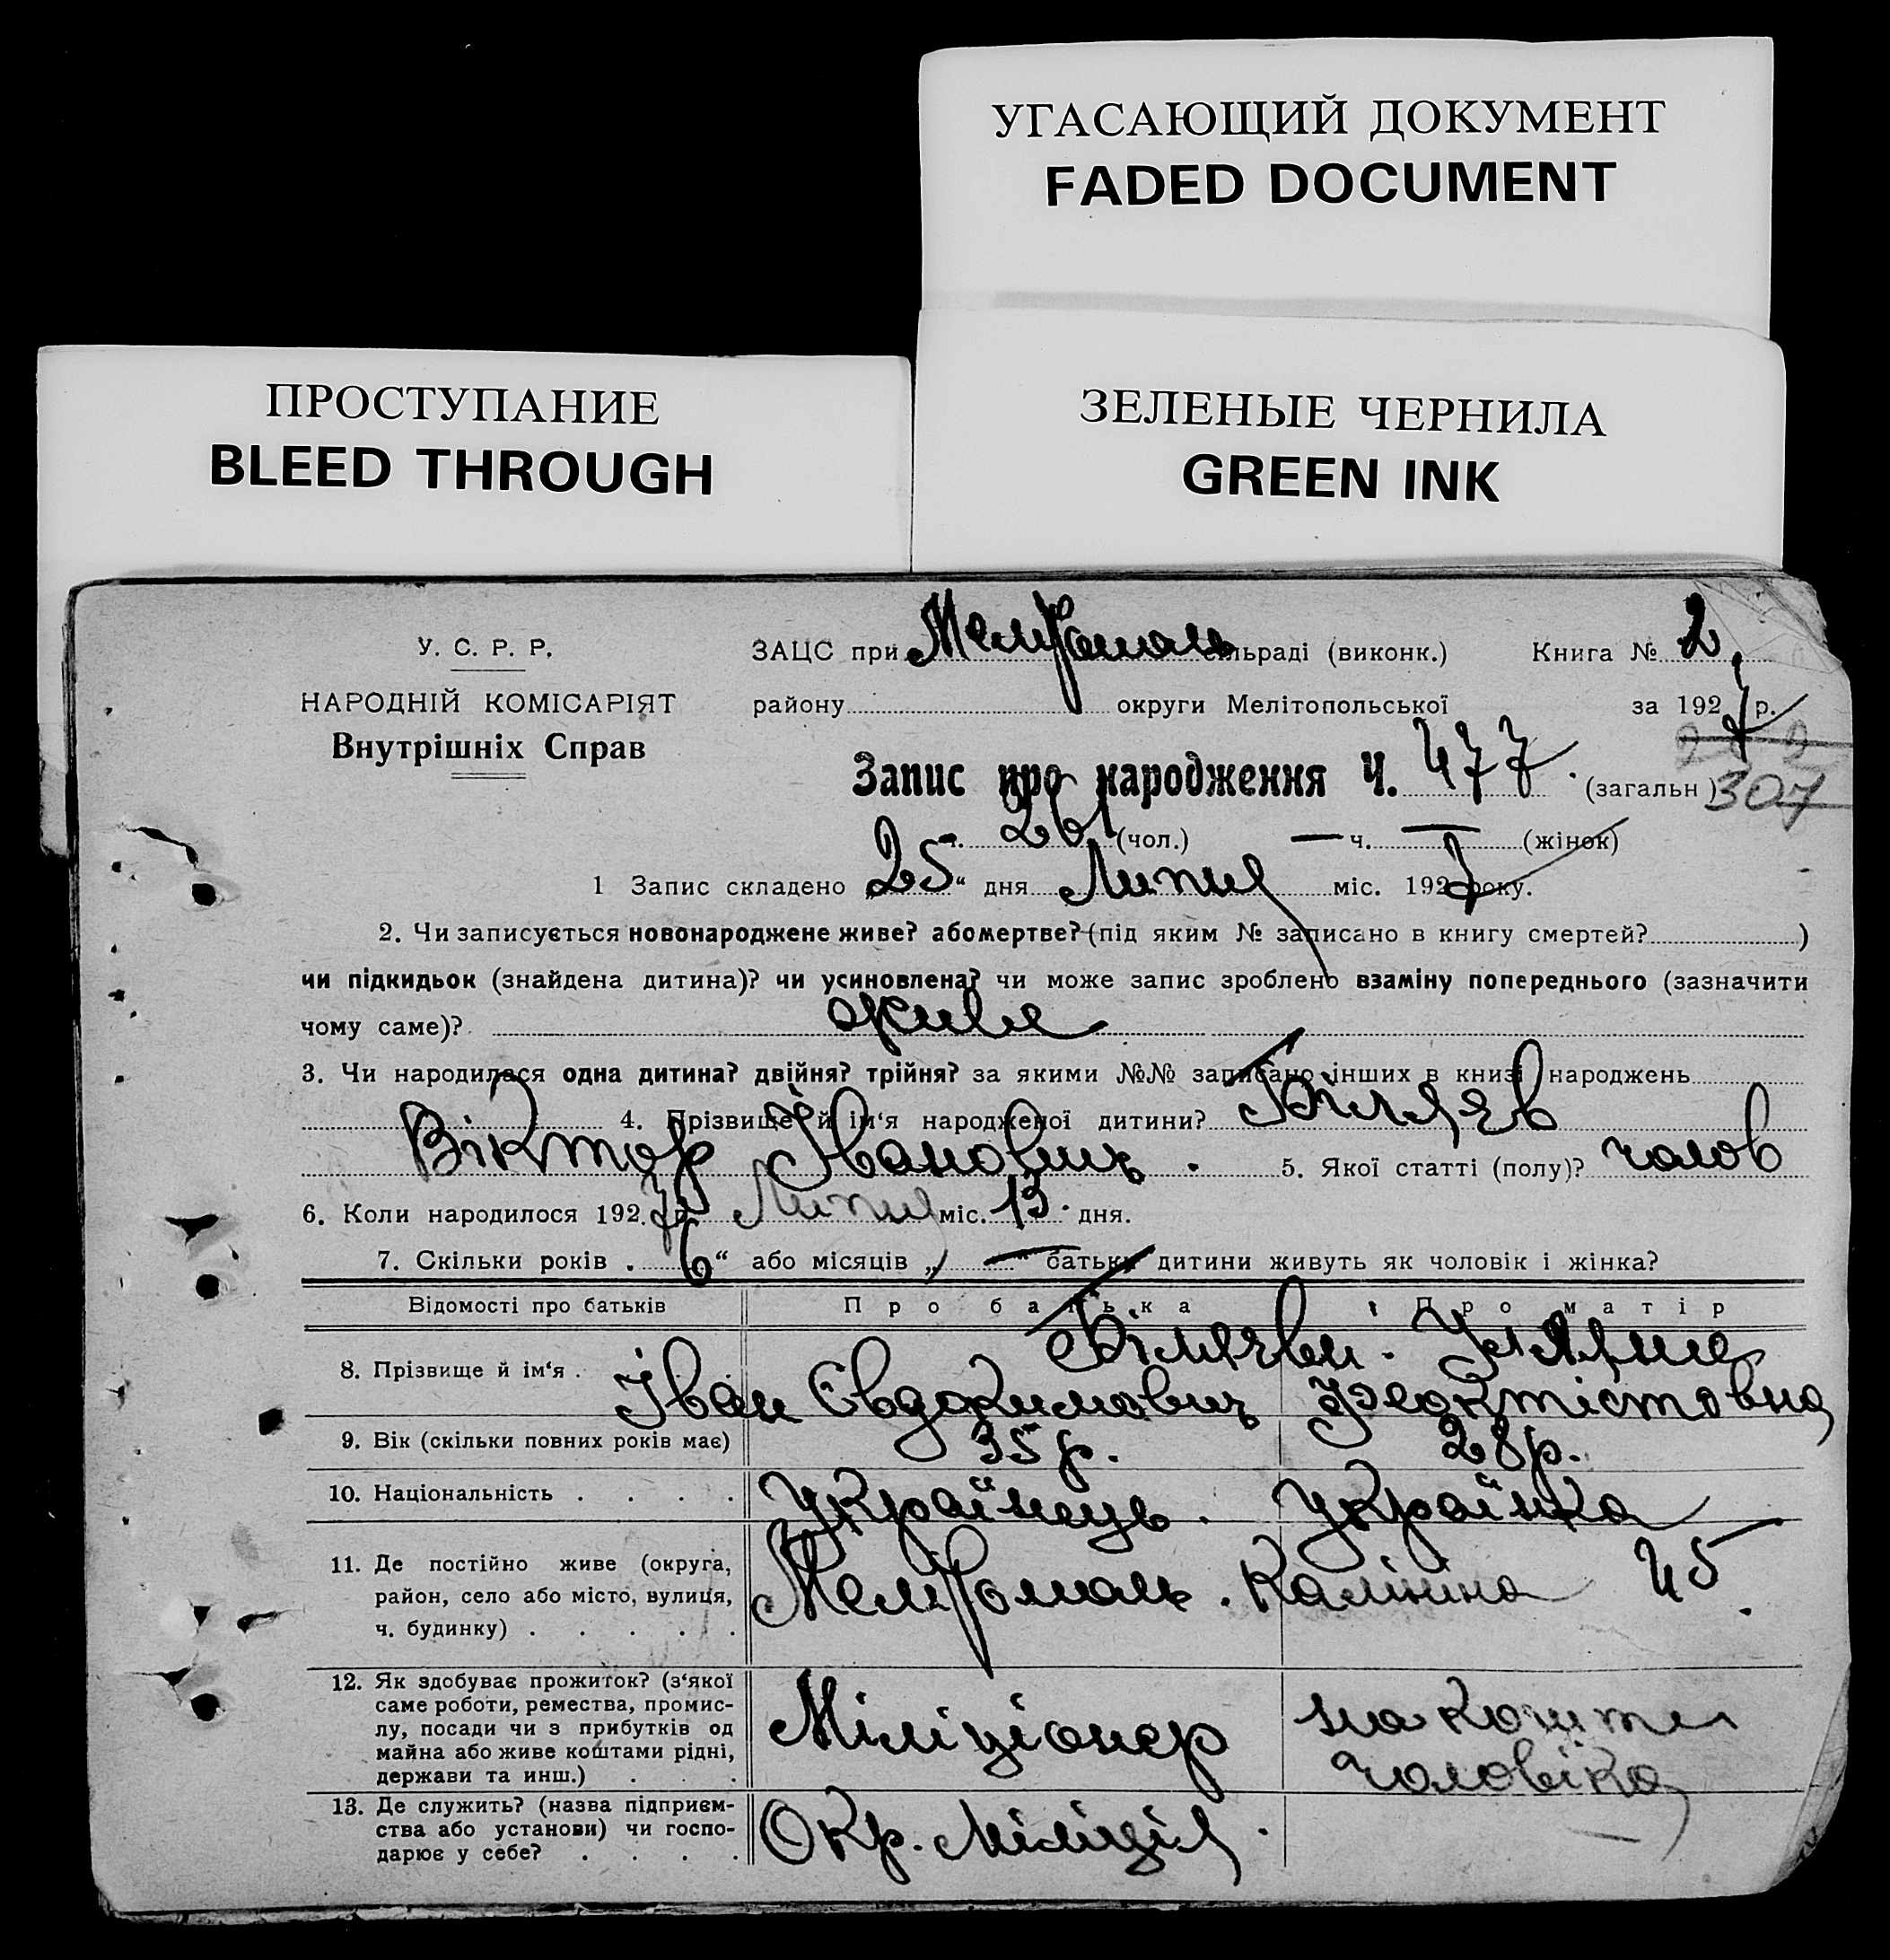 УГАСАЮЩИЙ ДОКУМЕНТ
FADED DOCUMENT
ПРОСТУПАНИЕ
BLEED THROUGH
ЗЕЛЕНЫЕ ЧЕРНИЛА
GREEN INK
У. С. Р. Р.
НАРОДНІЙ КОМІСАРІЯТ
Внутрішніх Справ
ЗАЦС при Мелітополь сільраді (виконк.) Книга № 2
району округи Мелітопольської за 1927 р.
Запис про народження Ч. 477. (загальн)
307
ч. 261 (чол.) — ч. — (жінок)
1 Запис складено „25“ дня Липця міс. 1927 року.
2. Чи записується новонароджене живе? або мертве? (під яким № записано в книгу смертей? )
чи підкидьок (знайдена дитина)? чи усиновлена? чи може запис зроблено взаміну попереднього (зазначити
чому саме)? живе
3. Чи народилася одна дитина? двійня? трійня? за якими №№ записано інших в книзі народжень
4. Прізвище й ім‘я народженої дитини? Біляєв
Віктор Іванович. 5. Якої статті (полу)? чолов
6. Коли народилося 1927 р. Липця міс. 13. дня.
7. Скільки років „6“ або місяців „—“ батьки дитини живуть як чоловік і жінка?
Відомості про батьків Про батька Про матір
8. Прізвище й ім‘я . Біляєви.
Іван Євдокимович Феоктістовна
9. Вік (скільки повних років має) 35 р. 28 р.
10. Національність . . . . Українець. Українка
11. Де постійно живе (округа,
район, село або місто, вулиця,
ч. будинку) . . . . . Мелітополь. Калініна 45.
12. Як здобуває прожиток? (з‘якої
саме роботи, ремества, промис-
лу, посади чи з прибутків од
майна або живе коштами рідні,
держави та инш.) . . . Міліціонер на кошти
чоловіка
13. Де служить? (назва підприєм-
ства або установи) чи госпо-
дарює у себе? . . . . Окр. міліція.